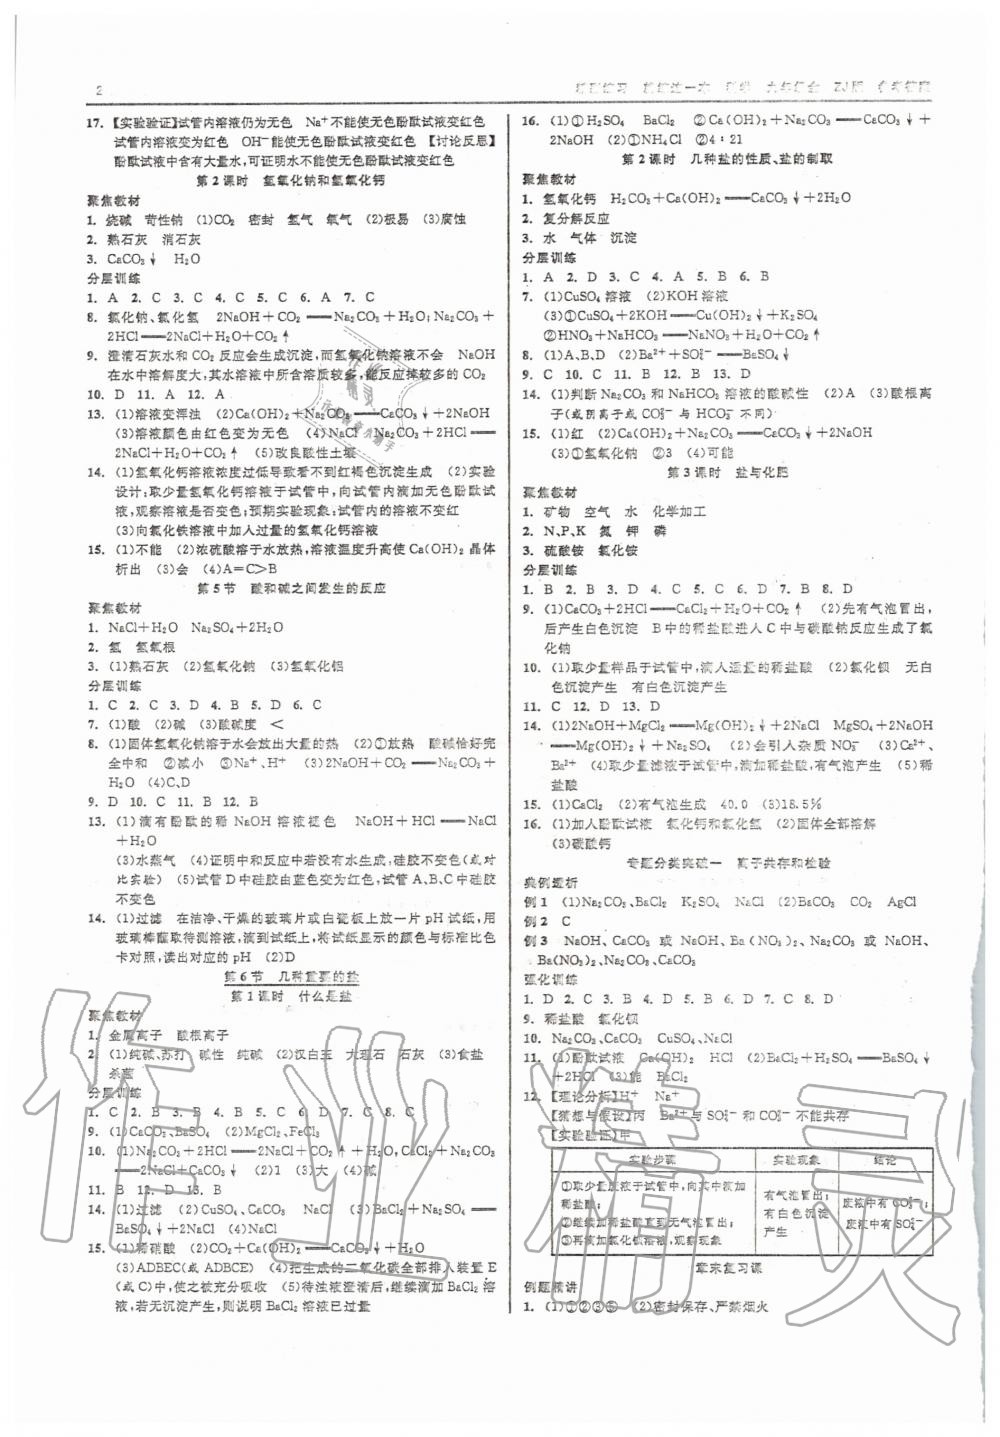 2
17. 【实验验证】试管内溶液仍为无色 Na⁺不能使无色酚酞试液变红色
试管内溶液变为红色 OH⁻能使无色酚酞试液变红色 【讨论反思】
酚酞试液中含有大量水,可证明水不能使无色酚酞试液变红色
第2课时 氢氧化钠和氢氧化钙
聚焦教材
1. 烧碱 苛性钠 (1)CO₂ 密封 氢气 氧气 (2)极易 (3)腐蚀
2. 熟石灰 消石灰
3. CaCO₃↓ H₂O
分层训练
1. A 2. C 3. C 4. C 5. C 6. A 7. C
8. 氯化钠、氯化氢 2NaOH+CO₂══Na₂CO₃+H₂O;Na₂CO₃+
2HCl══2NaCl+H₂O+CO₂↑
9. 澄清石灰水和 CO₂ 反应会生成沉淀,而氢氧化钠溶液不会 NaOH
在水中溶解度大,其水溶液中所含溶质较多,能反应掉较多的 CO₂
10. D 11. A 12. A
13. (1)溶液变浑浊 (2)Ca(OH)₂+Na₂CO₃══CaCO₃↓+2NaOH
(3)溶液颜色由红色变为无色 (4)NaCl Na₂CO₃+2HCl══
2NaCl+H₂O+CO₂↑ (5)改良酸性土壤
14. (1)氢氧化钙溶液浓度过低导致看不到红褐色沉淀生成 (2)实验
设计:取少量氢氧化钙溶液于试管中,向试管内滴加无色酚酞试
液,观察溶液是否变色;预期实验现象:试管内的溶液不变红
(3)向氯化铁溶液中加入过量的氢氧化钙溶液
15. (1)不能 (2)浓硫酸溶于水放热,溶液温度升高使 Ca(OH)₂ 晶体
析出 (3)会 (4)A=C>B
第5节 酸和碱之间发生的反应
聚焦教材
1. NaCl+H₂O Na₂SO₄+2H₂O
2. 氢 氢氧根
3. (1)熟石灰 (2)氢氧化钠 (3)氢氧化铝
分层训练
1. C 2. C 3. D 4. B 5. D 6. C
7. (1)酸 (2)碱 (3)酸碱度 <
8. (1)固体氢氧化钠溶于水会放出大量的热 (2)①放热 酸碱恰好完
全中和 ②减小 ③Na⁺、H⁺ (3)2NaOH+CO₂══Na₂CO₃+
H₂O (4)C、D
9. D 10. C 11. B 12. B
13. (1)滴有酚酞的稀 NaOH 溶液褪色 NaOH+HCl══NaCl
+H₂O
(3)水蒸气 (4)证明中和反应中若没有水生成,硅胶不变色(或对
比实验) (5)试管D中硅胶由蓝色变为红色,试管A、B、C中硅胶
不变色
14. (1)过滤 在洁净、干燥的玻璃片或白瓷板上放一片 pH 试纸,用
玻璃棒蘸取待测溶液,滴到试纸上,将试纸显示的颜色与标准比色
卡对照,读出对应的 pH (2)D
第6节 几种重要的盐
第1课时 什么是盐
聚焦教材
1. 金属离子 酸根离子
2. (1)纯碱、苏打 碱性 纯碱 (2)汉白玉 大理石 石灰 (3)食盐
杀菌
分层训练
1. C 2. B 3. B 4. B 5. C 6. C 7. C 8. C
9. (1)CaCO₃、BaSO₄ (2)MgCl₂、FeCl₃
10. (1)Na₂CO₃+2HCl══2NaCl+CO₂↑+H₂O,CaCl₂+Na₂CO₃
══2NaCl+CaCO₃↓ (2)1 (3)大 (4)碱
11. B 12. D 13. B
14. (1)过滤 (2)CuSO₄、CaCO₃ NaCl (3)BaCl₂+Na₂SO₄══
BaSO₄↓+2NaCl (4)NaCl
15. (1)稀硝酸 (2)CO₂+Ca(OH)₂══CaCO₃↓+H₂O
(3)ADBEC(或DABEC) (4)把生成的二氧化碳全部排入装置E
(或C)中,使之被充分吸收 (5)待浊液澄清后,继续滴加 BaCl₂ 溶
液,若无沉淀产生,则说明 BaCl₂ 溶液已过量
16. (1)①H₂SO₄ BaCl₂ ②Ca(OH)₂+Na₂CO₃══CaCO₃↓+
2NaOH (2)①NH₄Cl ②4∶21
第2课时 几种盐的性质、盐的制取
聚焦教材
1. 氢氧化钙 H₂CO₃+Ca(OH)₂══CaCO₃↓+2H₂O
2. 复分解反应
3. 水 气体 沉淀
分层训练
1. A 2. D 3. C 4. A 5. B 6. B
7. (1)CuSO₄ 溶液 (2)KOH 溶液
(3)①CuSO₄+2KOH══Cu(OH)₂↓+K₂SO₄
②HNO₃+NaHCO₃══NaNO₃+H₂O+CO₂↑
8. (1)A、B、D (2)Ba²⁺+SO₄²⁻══BaSO₄↓
9. C 10. C 11. B 12. B 13. D
14. (1)判断 Na₂CO₃ 和 NaHCO₃ 溶液的酸碱性 (2)A (3)酸根离
子(或阴离子或 CO₃²⁻ 与 HCO₃⁻ 不同)
15. (1)红 (2)Ca(OH)₂+Na₂CO₃══CaCO₃↓+2NaOH
(3)①氢氧化钠 ②3 (4)可能
第3课时 盐与化肥
聚焦教材
1. 矿物 空气 水 化学加工
2. N、P、K 氮 钾 磷
3. 硫酸铵 氯化铵
分层训练
1. B 2. B 3. D 4. C 5. D 6. D 7. B 8. D
9. (1)CaCO₃+2HCl══CaCl₂+H₂O+CO₂↑ (2)先有气泡冒出,
后产生白色沉淀 B中的稀盐酸进入C中与碳酸钠反应生成了氯
化钠
10. (1)取少量样品于试管中,滴入适量的稀盐酸 (2)氯化钡 无白
色沉淀产生 有白色沉淀产生
11. C 12. D 13. D
14. (1)2NaOH+MgCl₂══Mg(OH)₂↓+2NaCl MgSO₄+2NaOH
══Mg(OH)₂↓+Na₂SO₄ (2)会引入杂质 NO₃⁻ (3)Ca²⁺、
Ba²⁺ (4)取少量滤液于试管中,滴加稀盐酸,有气泡产生 (5)稀
盐酸
15. (1)CaCl₂ (2)有气泡生成 40.0 (3)18.5%
16. (1)加入酚酞试液 氯化钙和氯化氢 (2)固体全部溶解
(3)碳酸钙
专题分类突破一 离子共存和检验
典例透析
例1 (1)Na₂CO₃、BaCl₂ K₂SO₄ NaCl (2)BaCO₃ CO₂ AgCl
例2 C
例3 NaOH、CaCO₃ 或 NaOH、Ba(NO₃)₂、Na₂CO₃ 或 NaOH、
Ba(NO₃)₂、Na₂CO₃、CaCO₃
强化训练
1. D 2. C 3. D 4. C 5. D 6. D 7. C 8. D
9. 稀盐酸 氯化钡
10. Na₂CO₃、CaCO₃ CuSO₄、NaCl
11. (1)酚酞试液 Ca(OH)₂ HCl (2)BaCl₂+H₂SO₄══BaSO₄↓
+2HCl (3)能 BaCl₂
12. 【理论分析】H⁺ Na⁺
【猜想与假设】丙 Ba²⁺与 SO₄²⁻ 和 CO₃²⁻ 不能共存
【实验验证】甲
实验步骤 实验现象 结论
①取少量废液于试管中,向其中滴加
稀盐酸;
②继续加稀盐酸直到无气泡冒出;
③再滴加氯化钡溶液,观察现象
有气泡冒出;
有白色沉淀
产生
废液中有 CO₃²⁻;
废液中有 SO₄²⁻
章末复习课
例题精讲
1. (1)①②③⑤ (2)密封保存、严禁烟火
作业精灵